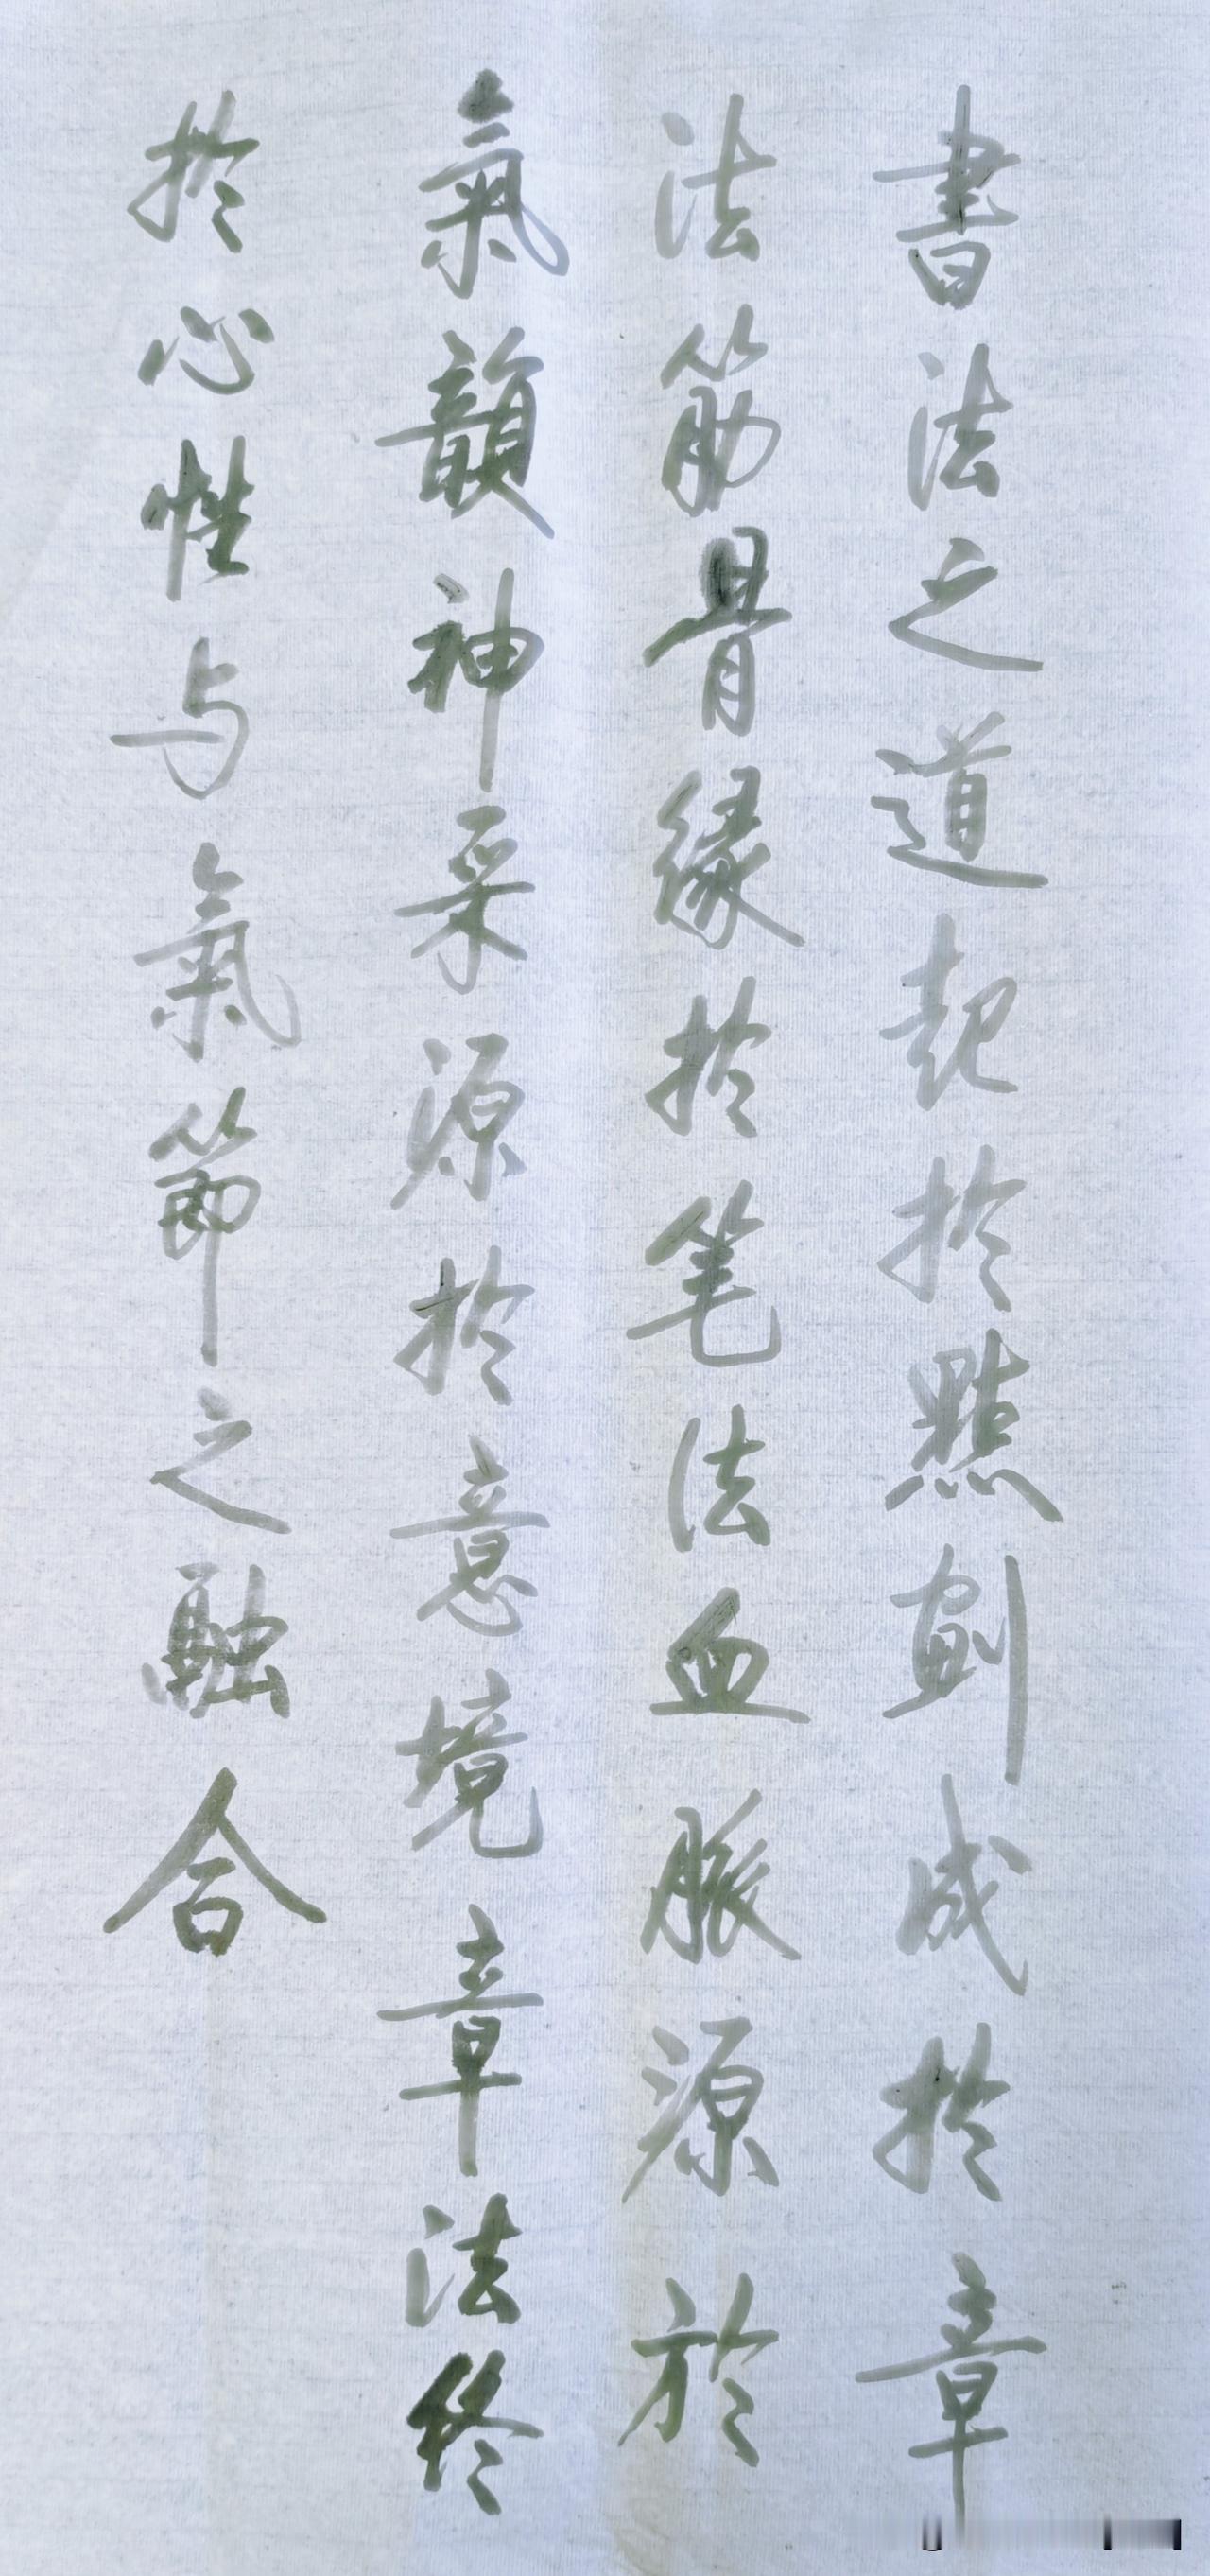 書法之道起於點劃成於章
法筋骨緣於笔法血脈源於
氣韻神采源於意境章法终
於心性与氣節之融合